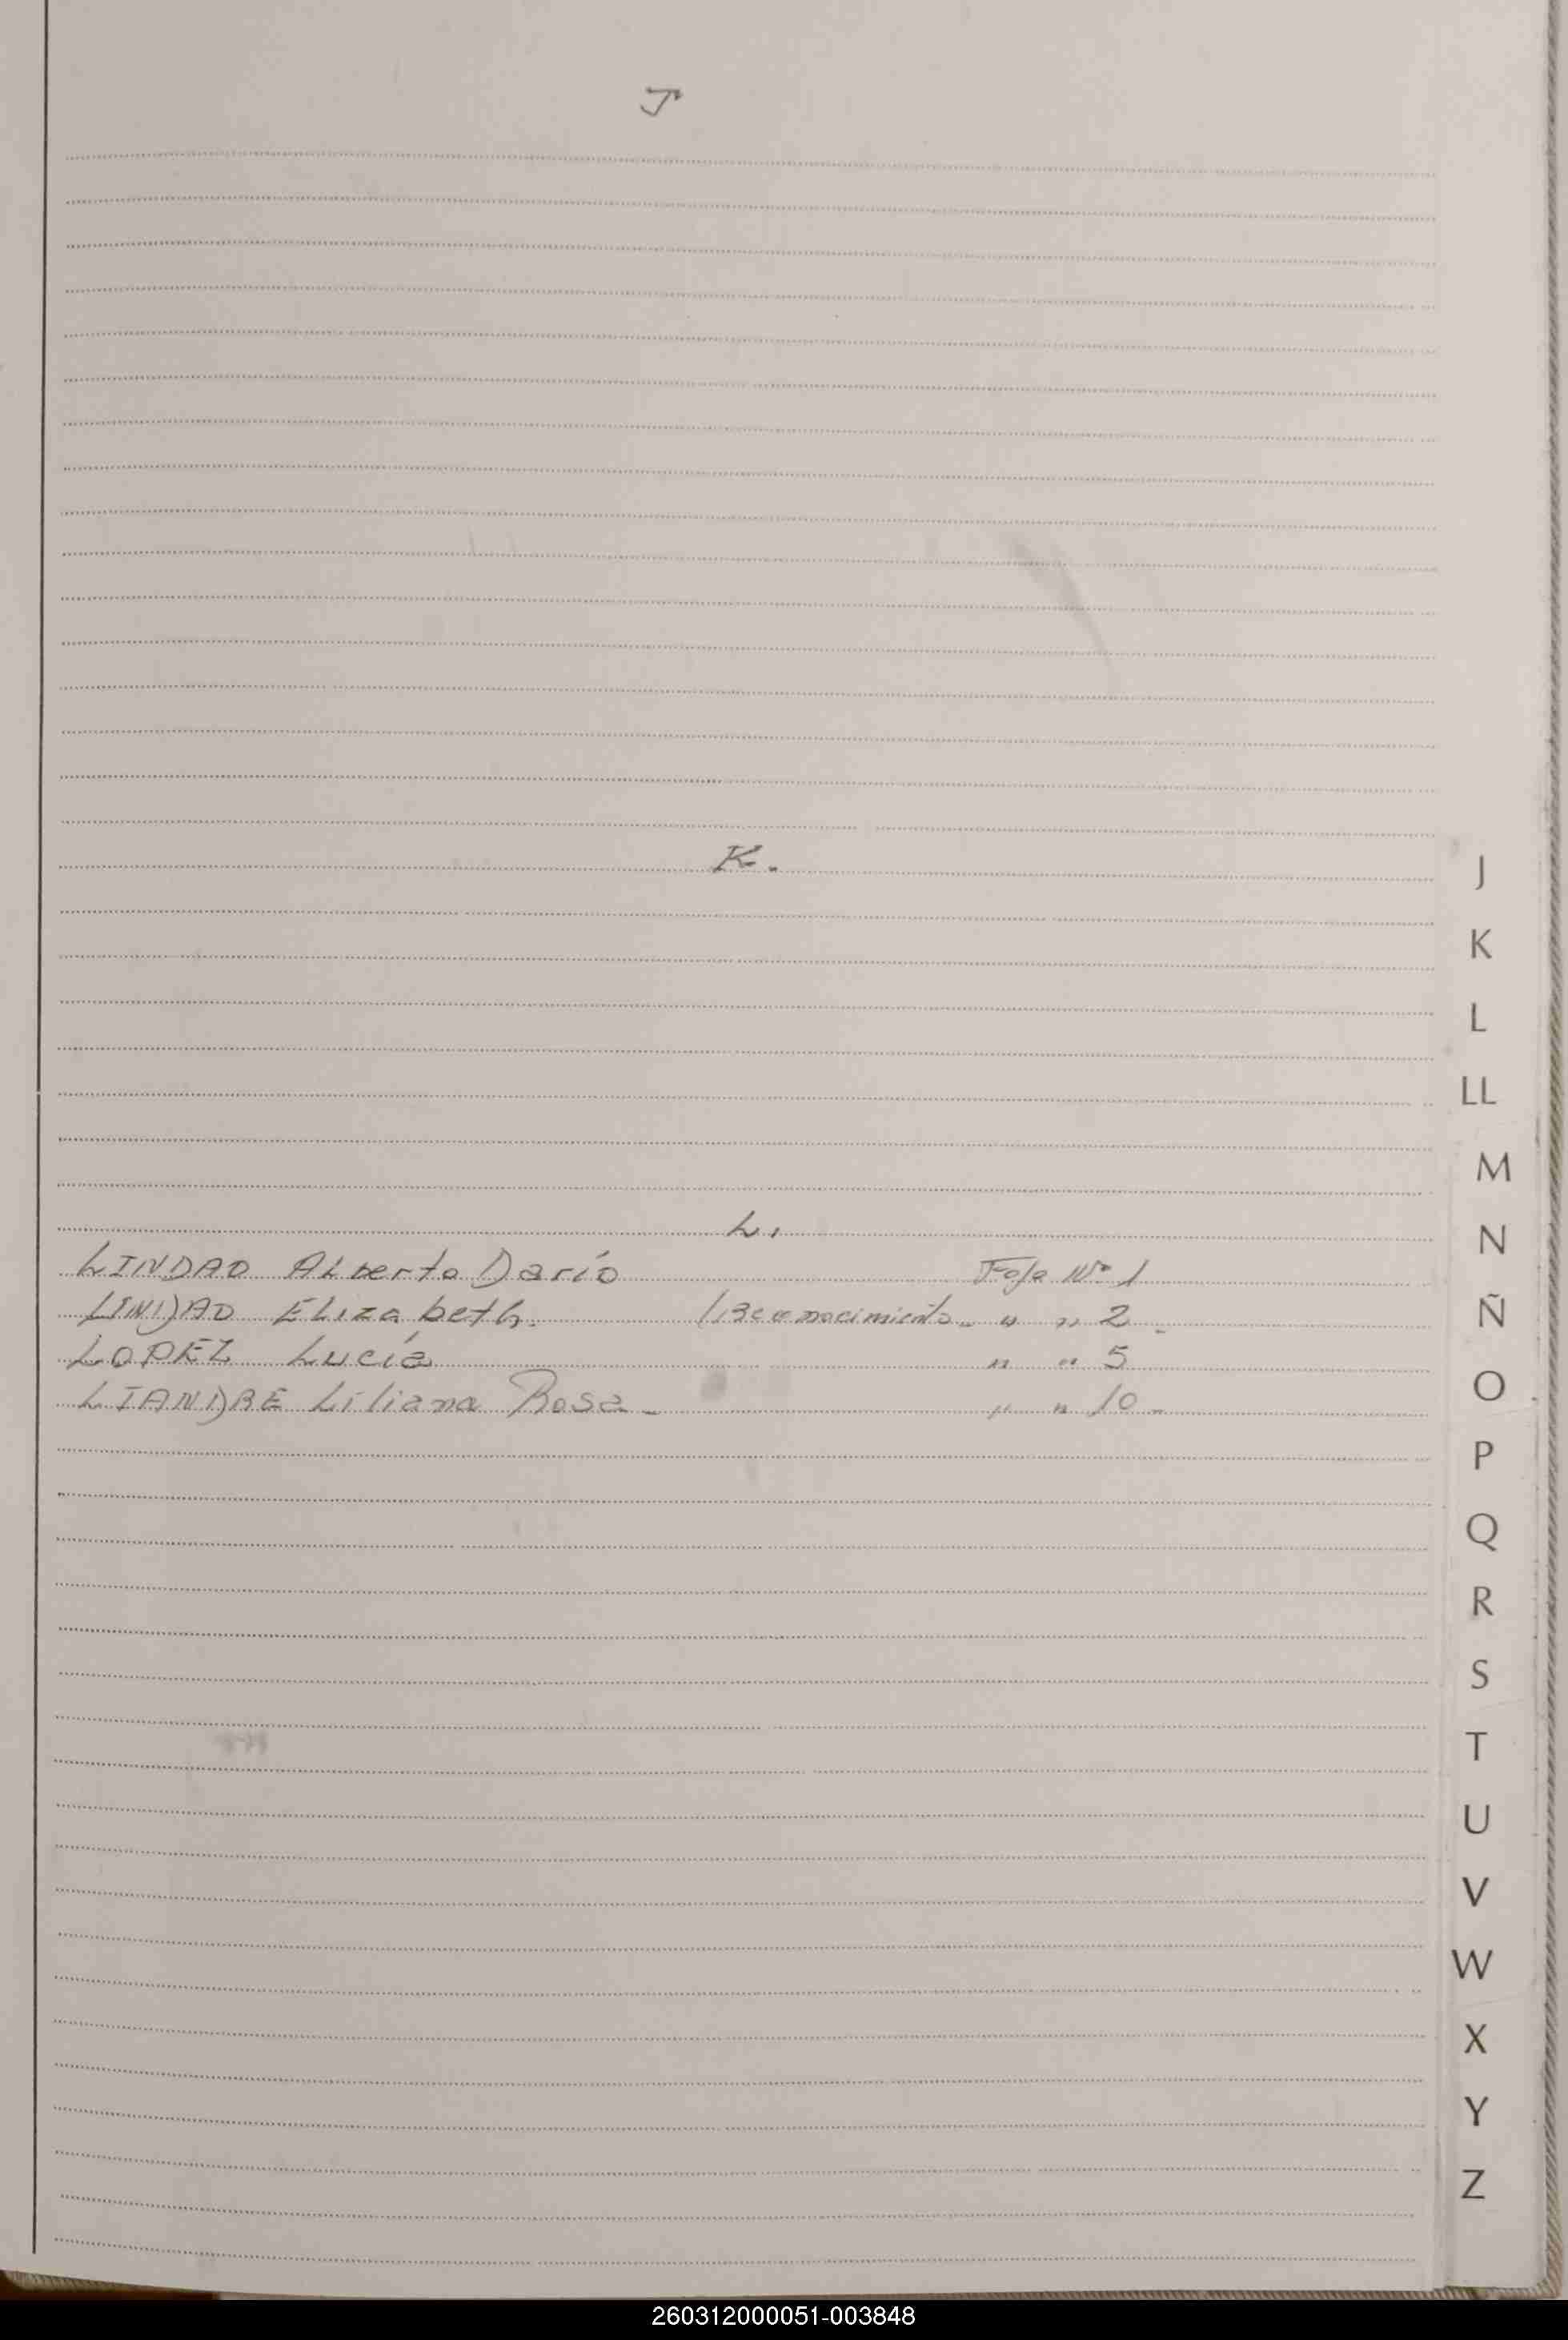 J
K.
L.
LINDAO Alberto Darío Foja Nº 1
LINDAO Elizabeth. (Reconocimiento. " " 2.
LOPEZ Lucía " " 5
LIANDRE Liliana Rosa. " " 10.
J
K
L
LL
M
N
Ñ
O
P
Q
R
S
T
U
V
W
X
Y
Z
260312000051-003848